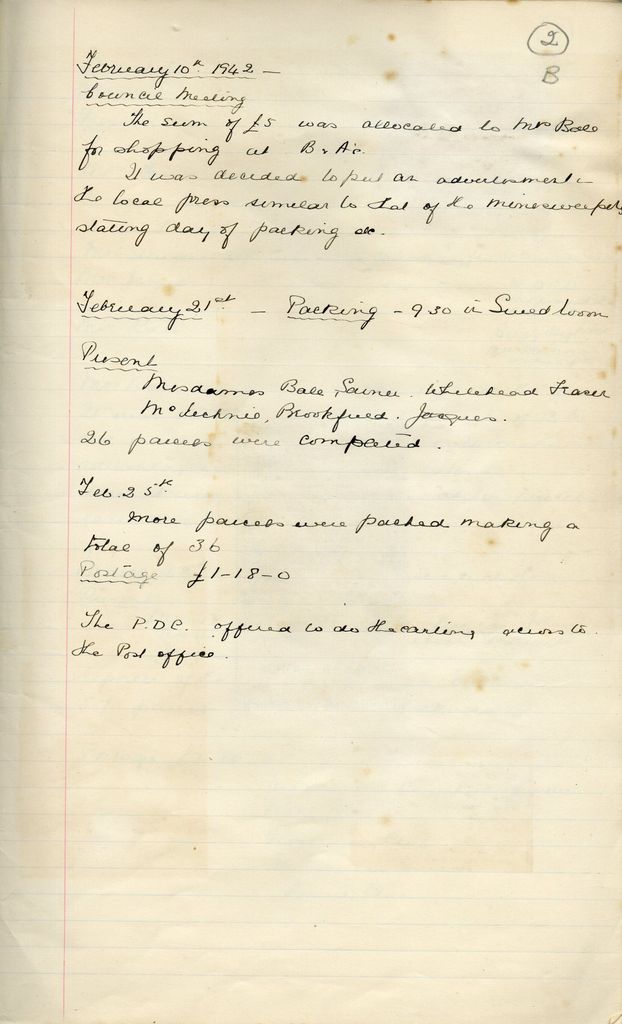 2
B
February 10th 1942 —
Council Meeting
The sum of £5 was allocated to Mrs Bale
for shopping at B & A's.
It was decided to put an advertisment in
the local press similar to that of the minesweepers
stating day of packing etc.
February 21st — Packing — 9 30 in Sewed
Present
Mesdames Bale, Whitehead Fraser
McKechnie, Brookfield. Jacques.
26 parcels were completed.
Feb. 25th
More parcels were packed making a
total of 36
Postage £1-18-0
The P.D.C. offered to do the carting to
the Post office.